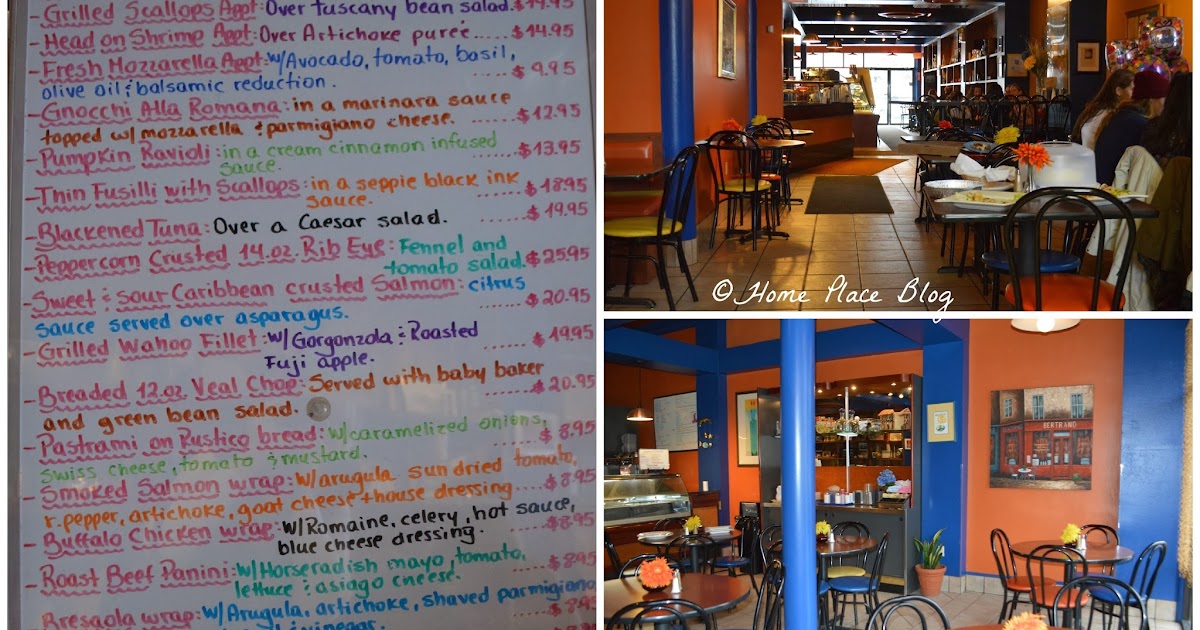 - Grilled Scallops Appt: Over tuscany bean salad. $14.95
- Head on Shrimp Appt: Over Artichoke pureé..... $14.95
- Fresh Mozzarella Appt: w/Avocado, tomato, basil,
olive oil & balsamic reduction. ..... $ 9.95
- Gnocchi Alla Romana: in a marinara sauce
topped w/ mozzarella & parmigiano cheese. ......$12.95
- Pumpkin Ravioli: in a cream cinnamon infused
sauce. ......$13.95
- Thin Fusilli with Scallops: in a seppie black ink
sauce. ......$ 18.95
- Blackened Tuna: Over a Caesar salad. ...... $ 19.95
- Peppercorn Crusted 14.oz. Rib Eye: Fennel and
tomato salad. $25.95
- Sweet & sour Caribbean crusted Salmon: citrus
sauce served over asparagus. ...... $ 20.95
- Grilled Wahoo Fillet: w/ Gorgonzola & Roasted
Fuji apple. ...... $ 19.95
- Breaded 12.oz. Veal Chop: Served with baby baker
and green bean salad. ...... $ 20.95
- Pastrami on Rustico bread: w/caramelized onions,
swiss cheese, tomato & mustard. ..... $ 8.95
- Smoked Salmon wrap: W/arugula, sun dried tomato,
r.pepper, artichoke, goat cheese + house dressing.... $8.95
- Buffalo Chicken wrap: W/Romaine, celery, hot sauce,
blue cheese dressing. $8.95
- Roast Beef Panini: w/ Horseradish mayo, tomato,
lettuce & asiago cheese. $8.95
Bresaola wrap: w/ Arugula, artichoke, shaved parmigiano
vinegar. $8.95
© Home Place Blog
BERTRAND